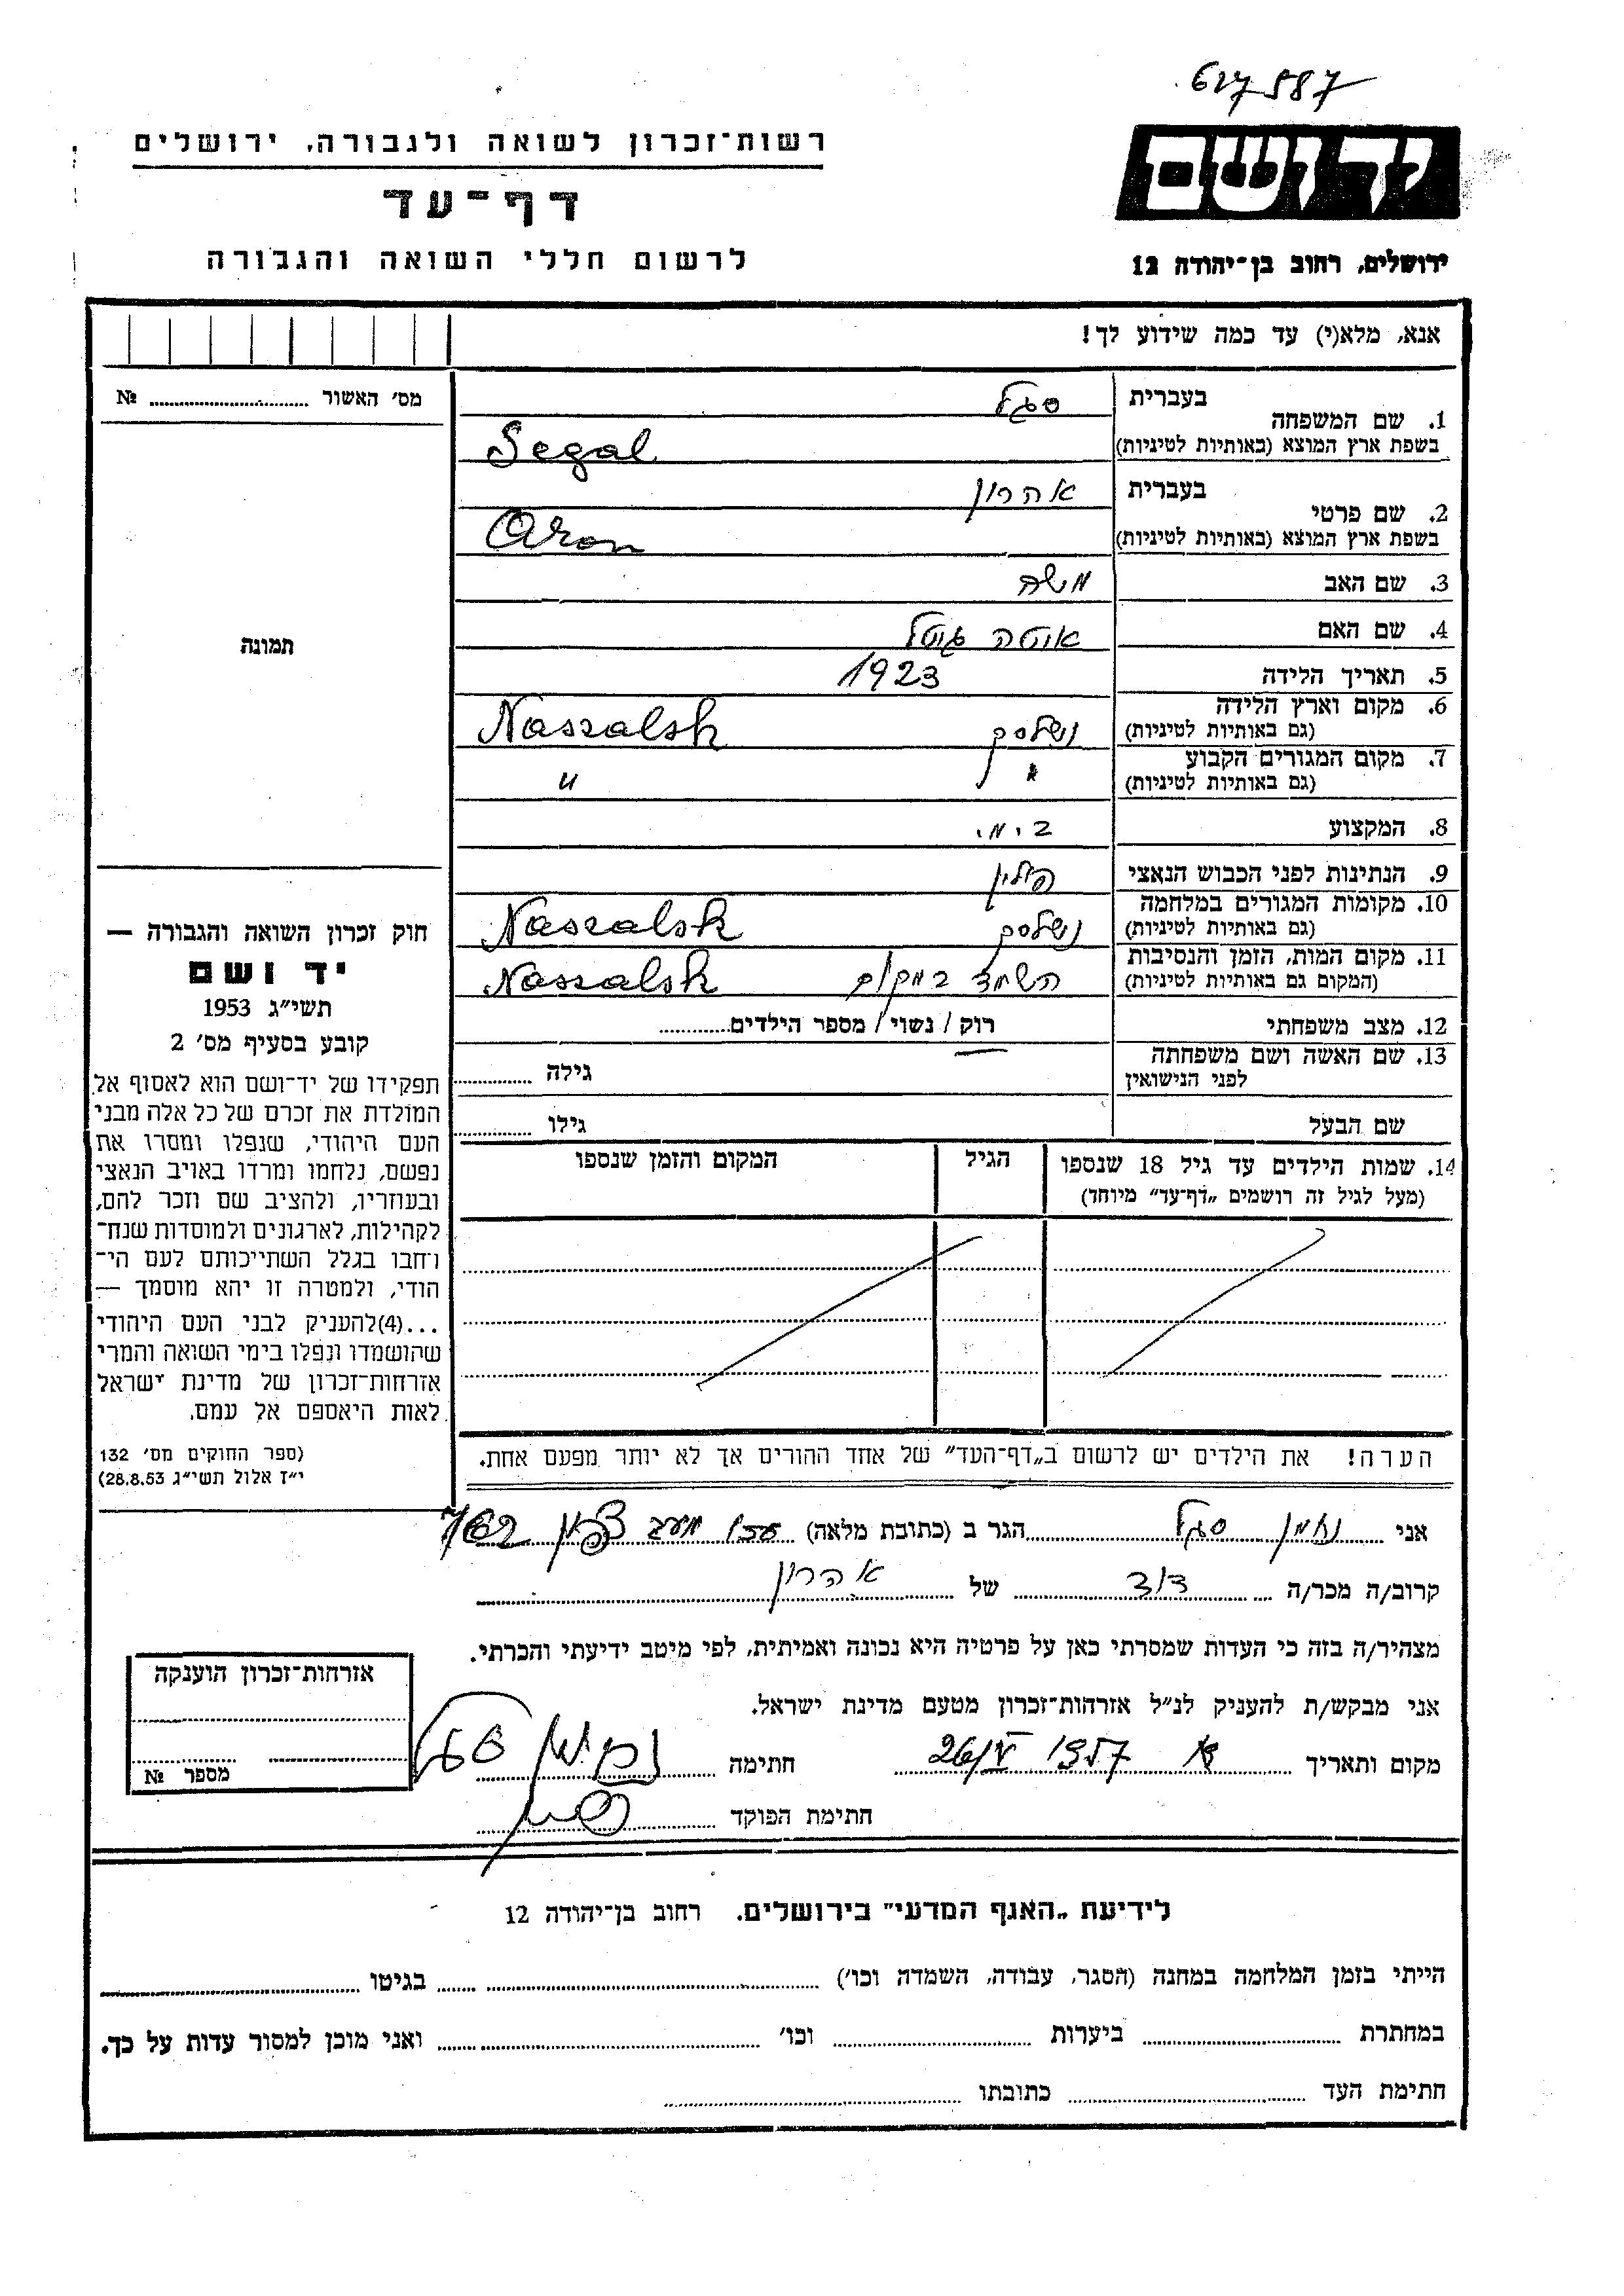 617887
רשות־זכרון לשואה ולגבורה, ירושלים
יד ושם
דף־עד
לרשום חללי השואה והגבורה
ירושלים, רחוב בן־יהודה 12
אנא, מלא(י) עד כמה שידוע לך!
מס׳ האשור № 
תמונה
1. שם המשפחה
בעברית סגל
בשפת ארץ המוצא (באותיות לטיניות) Segal
2. שם פרטי
בעברית אהרון
בשפת ארץ המוצא (באותיות לטיניות) Aron
3. שם האב משה
4. שם האם
5. תאריך הלידה 1923
6. מקום וארץ הלידה
(גם באותיות לטיניות) נשלסק Naszalsk
7. מקום המגורים הקבוע
(גם באותיות לטיניות) "
8. המקצוע
9. הנתינות לפני הכבוש הנאצי פולין
10. מקומות המגורים במלחמה
(גם באותיות לטיניות) נשלסק Naszalsk
11. מקום המות, הזמן והנסיבות
(המקום גם באותיות לטיניות) השמד במקום Naszalsk
12. מצב משפחתי רוק / נשוי / מספר הילדים
13. שם האשה ושם משפחתה
לפני הנישואין גילה
שם הבעל גילו
14. שמות הילדים עד גיל 18 שנספו
(מעל לגיל זה רושמים „דף־עד” מיוחד)
הגיל
המקום והזמן שנספו
הערה! את הילדים יש לרשום ב„דף־העד” של אחד ההורים אך לא יותר מפעם אחת.
חוק זכרון השואה והגבורה —
יד ושם
תשי״ג 1953
קובע בסעיף מס׳ 2
תפקידו של יד־ושם הוא לאסוף אל
המולדת את זכרם של כל אלה מבני
העם היהודי, שנפלו ומסרו את
נפשם, נלחמו ומרדו באויב הנאצי
ובעוזריו, ולהציב שם וזכר להם,
לקהילות, לארגונים ולמוסדות שנח־
רחבו בגלל השתייכותם לעם הי־
הודי, ולמטרה זו יהא מוסמך —
...(4) להעניק לבני העם היהודי
שהושמדו ונפלו בימי השואה והמרי
אזרחות־זכרון של מדינת ישראל
לאות היאספם אל עמם.
(ספר החוקים מס׳ 132
י״ז אלול תשי״ג 28.8.53)
אני נחמן סגל הגר ב (כתובת מלאה)
קרוב/ה מכר/ה דוד של אהרון
מצהיר/ה בזה כי העדות שמסרתי כאן על פרטיה היא נכונה ואמיתית, לפי מיטב ידיעתי והכרתי.
אני מבקש/ת להעניק לנ״ל אזרחות־זכרון מטעם מדינת ישראל.
מקום ותאריך 26/V 1957 חתימה
חתימת הפוקד
אזרחות־זכרון הוענקה
מספר №
לידיעת „האגף המדעי” בירושלים. רחוב בן־יהודה 12
הייתי בזמן המלחמה במחנה (הסגר, עבודה, השמדה וכו׳) בגיטו
במחתרת ביערות וכו׳ ואני מוכן למסור עדות על כך.
חתימת העד כתובתו